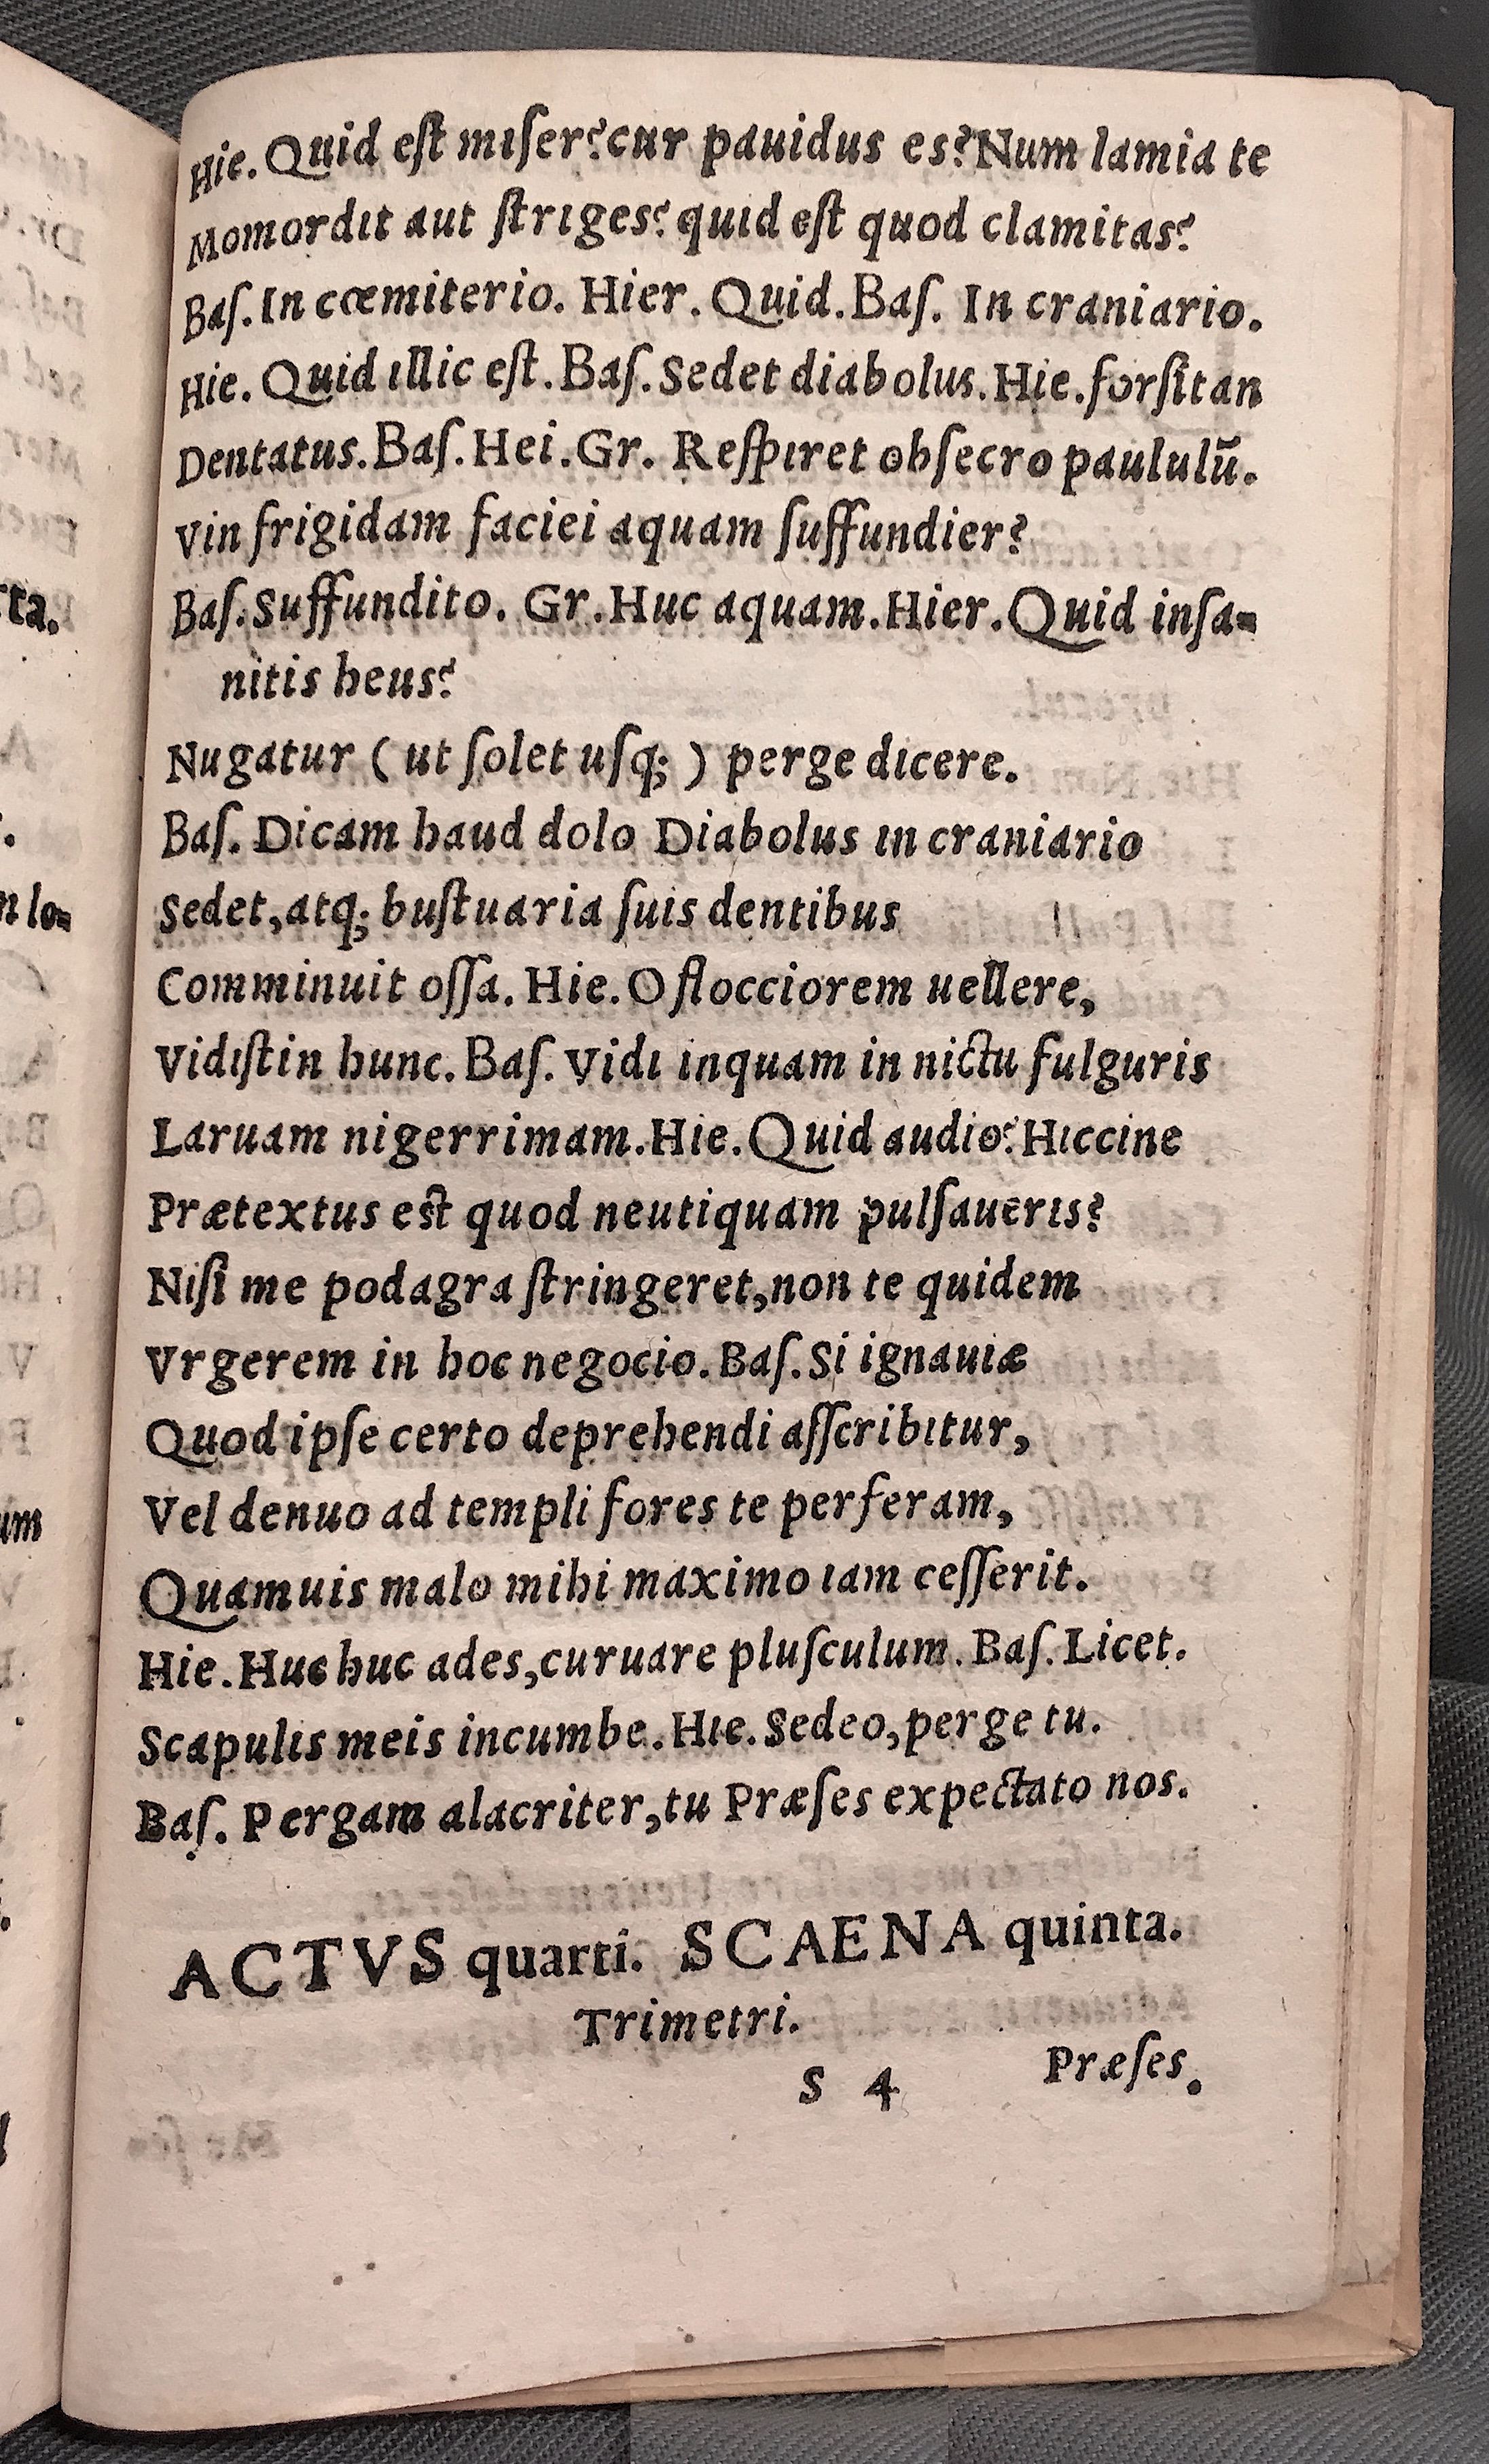 Hie. Quid eſt miſer? cur pauidus es? Num lamia te
Momordit aut ſtriges? quid eſt quod clamitas?
Baſ. In cœmiterio. Hier. Quid. Baſ. In craniario.
Hie. Quid illic eſt. Baſ. Sedet diabolus. Hie. forſitan
Dentatus. Baſ. Hei. Gr. Reſpiret obſecro paululū.
Vin frigidam faciei aquam ſuffundier?
Baſ. Suffundito. Gr. Huc aquam. Hier. Quid inſa=
nitis heus?
Nugatur ( ut ſolet uſq; ) perge dicere.
Baſ. Dicam haud dolo Diabolus in craniario
Sedet, atq; buſtuaria ſuis dentibus
Comminuit oſſa. Hie. O flocciorem uellere,
Vidiſtin hunc. Baſ. Vidi inquam in nictu fulguris
Laruam nigerrimam. Hie. Quid audio? Hiccine
Prætextus eſt quod neutiquam pulſaueris?
Niſi me podagra ſtringeret, non te quidem
Vrgerem in hoc negocio. Baſ. Si ignauiæ
Quod ipſe certo deprehendi aſſcribitur,
Vel denuo ad templi fores te perferam,
Quamuis malo mihi maximo iam ceſſerit.
Hie. Huc huc ades, curuare pluſculum. Baſ. Licet.
Scapulis meis incumbe. Hie. Sedeo, perge tu.
Baſ. Pergam alacriter, tu Præſes expectato nos.
ACTVS quarti. SCAENA quinta.
Trimetri.
S 4 Præſes.